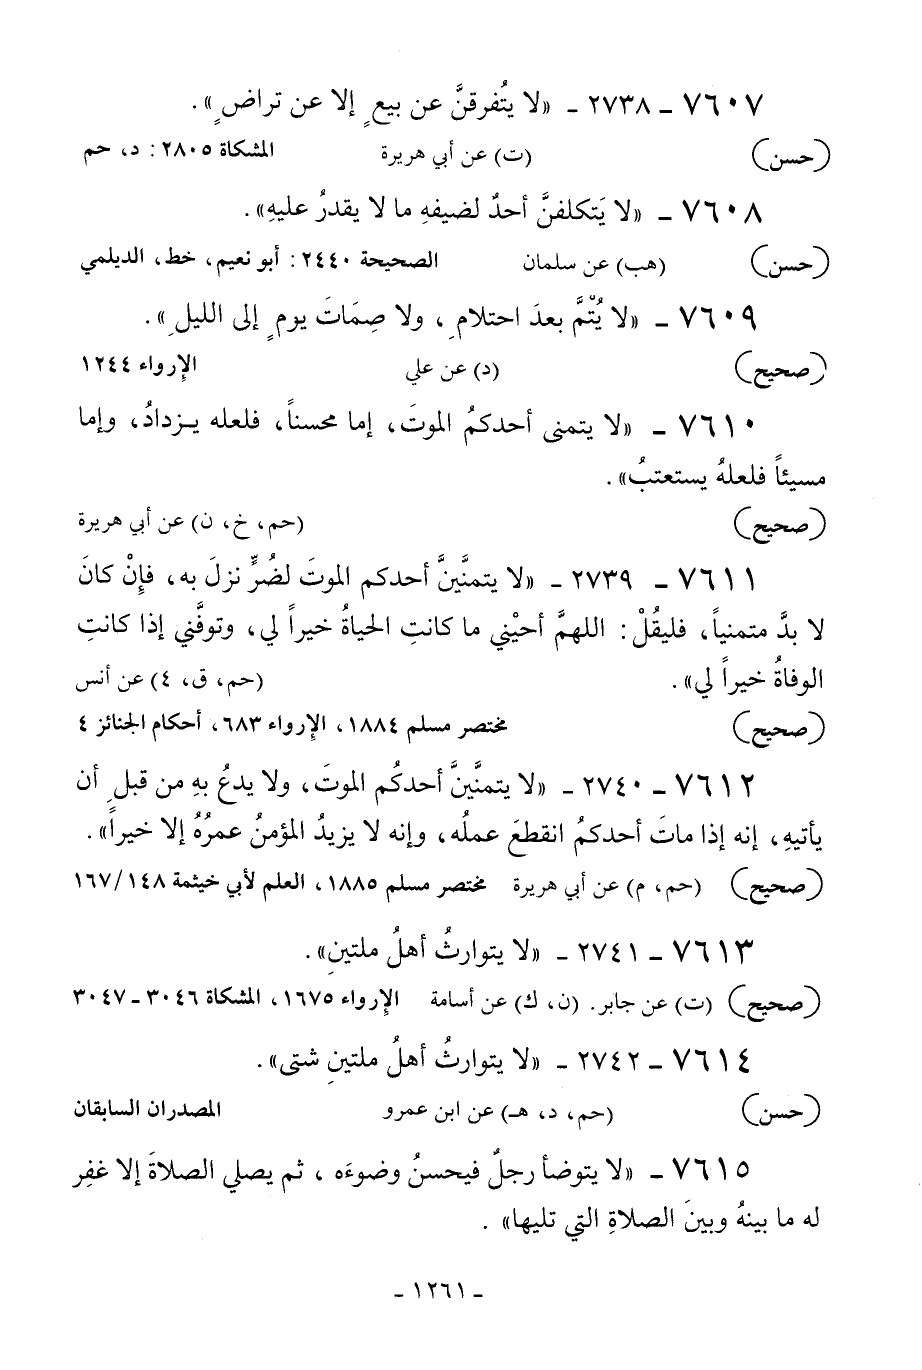 ٧٦٠٧ ـ ٢٧٣٨ ـ «لا يتُفرقنَّ عن بيعٍ إلا عن تراضٍ».
(حسن) (ت) عن أبي هريرة المشكاة ٢٨٠٥ : د، حم
٧٦٠٨ ـ «لا يَتكلفنَّ أحدٌ لضيفهِ ما لا يقدرُ عليهِ».
(حسن) (هب) عن سلمان الصحيحة ٢٤٤٠ : أبو نعيم، خط، الديلمي
٧٦٠٩ ـ «لا يُتْمَّ بعدَ احتلامِ ، ولا صِمَاتَ يومٍ إلى الليلِ».
(صحيح) (د) عن علي الإرواء ١٢٤٤
٧٦١٠ ـ «لا يتمنى أحدكمُ الموتَ، إما محسناً، فلعله يـزدادُ، وإما
مسيئاً فلعلهُ يستعتبُ».
(صحيح) (حم، خ، ن) عن أبي هريرة
٧٦١١ ـ ٢٧٣٩ ـ «لا يتمنَّينَّ أحدكم الموتَ لضُرٍّ نزلَ به، فإنْ كانَ
لا بدَّ متمنياً، فليقُلْ : اللهمَّ أحيْني ما كانتِ الحياةُ خيراً لي، وتوفَّني إذا كانتِ
الوفاةُ خيراً لي». (حم، ق، ٤) عن أنس
(صحيح) مختصر مسلم ١٨٨٤، الإرواء ٦٨٣، أحكام الجنائز ٤
٧٦١٢ ـ ٢٧٤٠ ـ «لا يتمنَّينَّ أحدكُم الموتَ، ولا يدعُ بهِ من قبلِ أن
يأتيهِ، إنه إذا ماتَ أحدكمُ انقطعَ عملُه، وإنه لا يزيدُ المؤمنُ عمرُهُ إلا خيراً».
(صحيح) (حم، م) عن أبي هريرة مختصر مسلم ١٨٨٥، العلم لأبي خيثمة ١٦٧/١٤٨
٧٦١٣ ـ ٢٧٤١ ـ «لا يتوارثُ أهلُ ملتينِ».
(صحيح) (ت) عن جابر. (ن، ك) عن أسامة الإرواء ١٦٧٥، المشكاة ٣٠٤٦ ـ ٣٠٤٧
٧٦١٤ ـ ٢٧٤٢ ـ «لا يتوارثُ أهلُ ملتينِ شتى».
(حسن) (حم، د، هـ) عن ابن عمرو المصدران السابقان
٧٦١٥ ـ «لا يتوضأ رجلٌ فيحسنُ وضوءَه ، ثم يصلي الصلاةَ إلا غفِر
له ما بينهُ وبينَ الصلاةِ التي تليها» .
ـ ١٢٦١ ـ